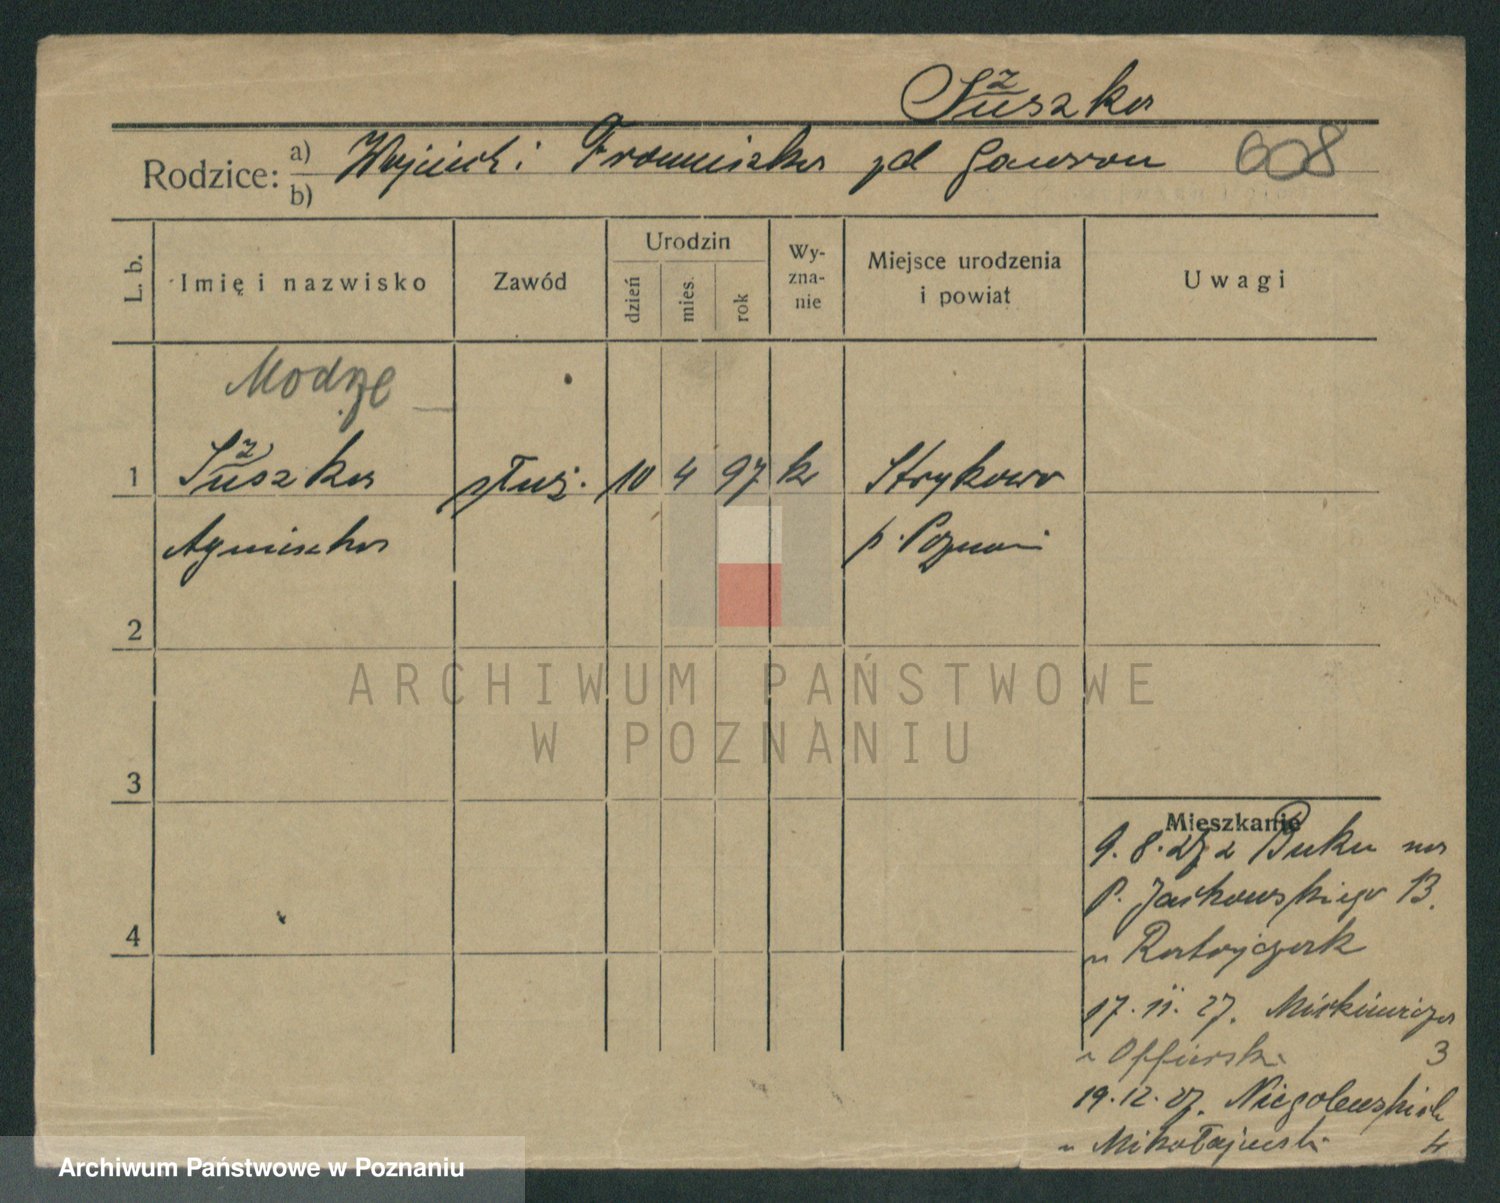 Suszka
Rodzice: a) Wojciech i Franciszka zd Gawron 608
b)
L. b. Imię i nazwisko Zawód Urodzin dzień mies. rok Wy-zna-nie Miejsce urodzenia i powiat Uwagi
1 Suszka służ. 10 4 97 k Strykowo
Agnieszka p. Poznań
2
3
4
Mieszkanie
9.8.27 z Buku na
P. Jackowskiego 13.
u Ratajczak
17.11.27. Mickiewicza
u 3
19.12.27. Niegolewskich
u Mikołajewski 4
ARCHIWUM PAŃSTWOWE
W POZNANIU
Archiwum Państwowe w Poznaniu